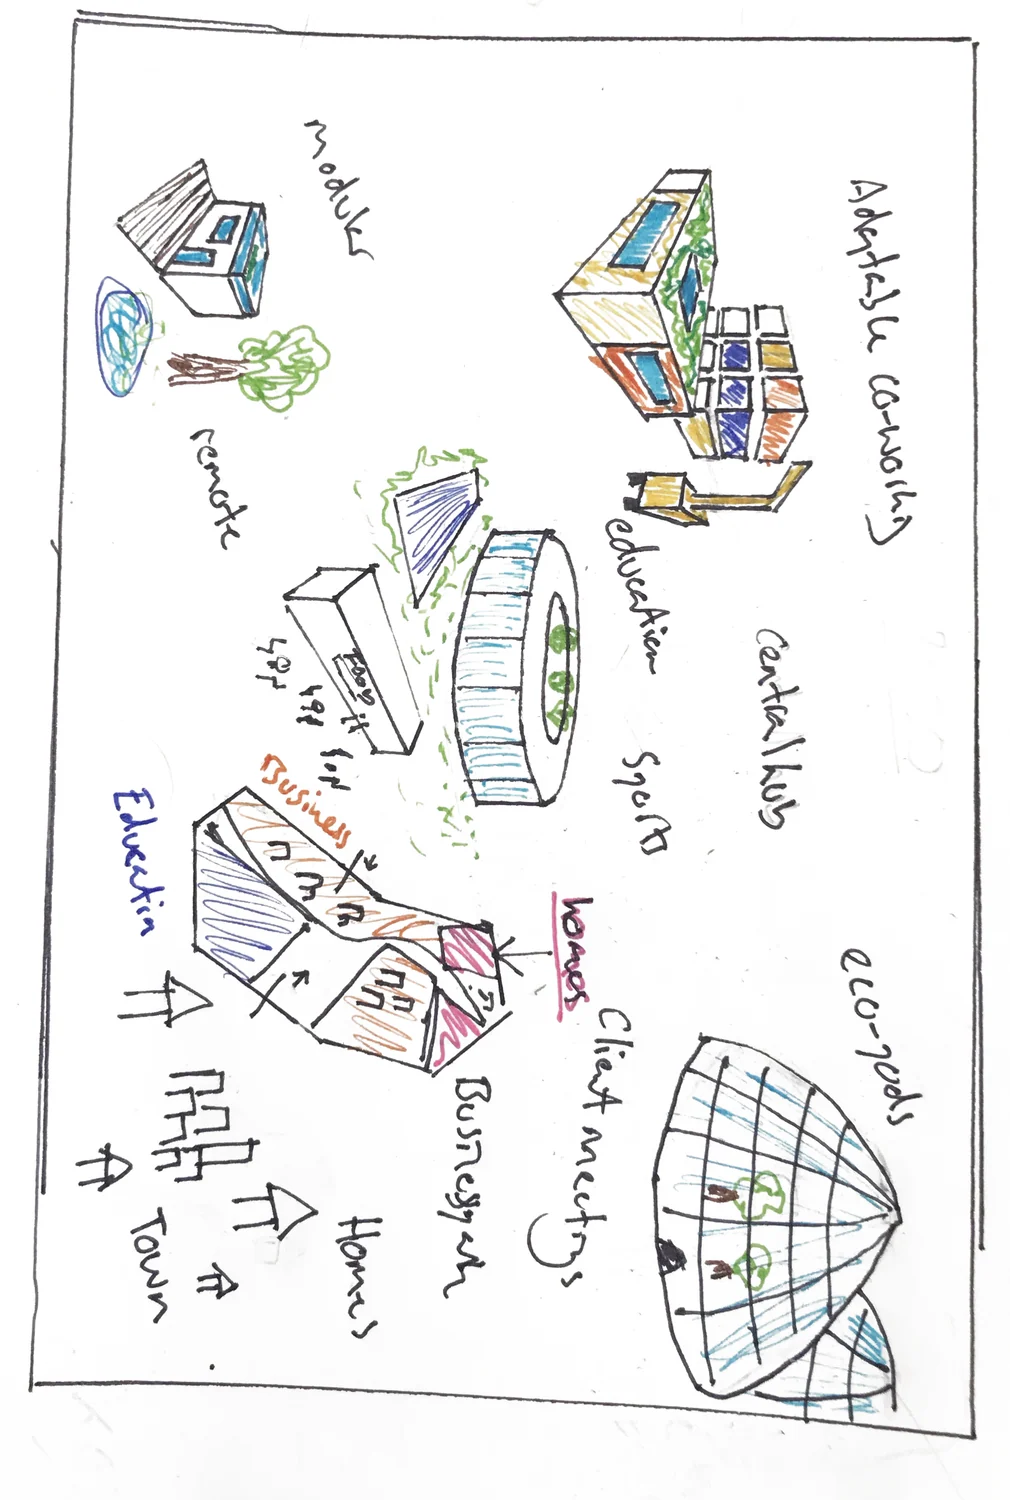 Adaptable co-working
modular
education
central hub
eco-pods
remote
Food
Sports
Business
homes
Client meetings
Education
Businesspark
Homes
Town